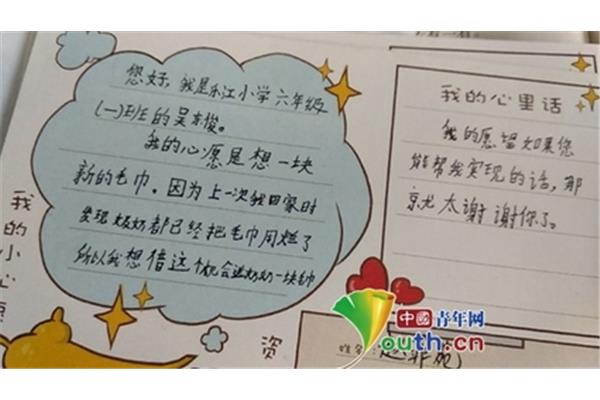 您好，我是乐江小学六年级
(一)班的吴东俊。
我的心愿是想一块
新的毛巾。因为上一次我回家时
发现奶奶都已经把毛巾用烂了
所以我想借这个机会送奶奶一块毛巾
我的小心愿
我的心里话
我的愿望如果您
能帮我实现的话，那
就太谢谢你了。
资
姓名：
中国青年网
youth.cn